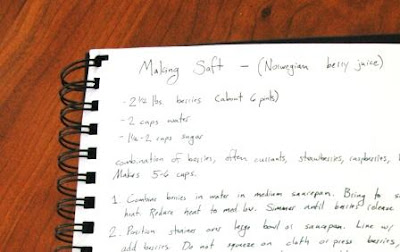 Making Saft - (Norwegian berry juice)
- 2 1/2 lbs. berries (about 6 pints)
- 2 cups water
- 1 1/2-2 cups sugar
combination of berries, often currants, strawberries, raspberries,
Makes 5-6 cups.
1. Combine berries in water in medium saucepan. Bring to
heat. Reduce heat to med low. Simmer until berries release
2. Position strainer over large bowl or saucepan. Line w/
add berries. Do not squeeze on cloth or press berries,